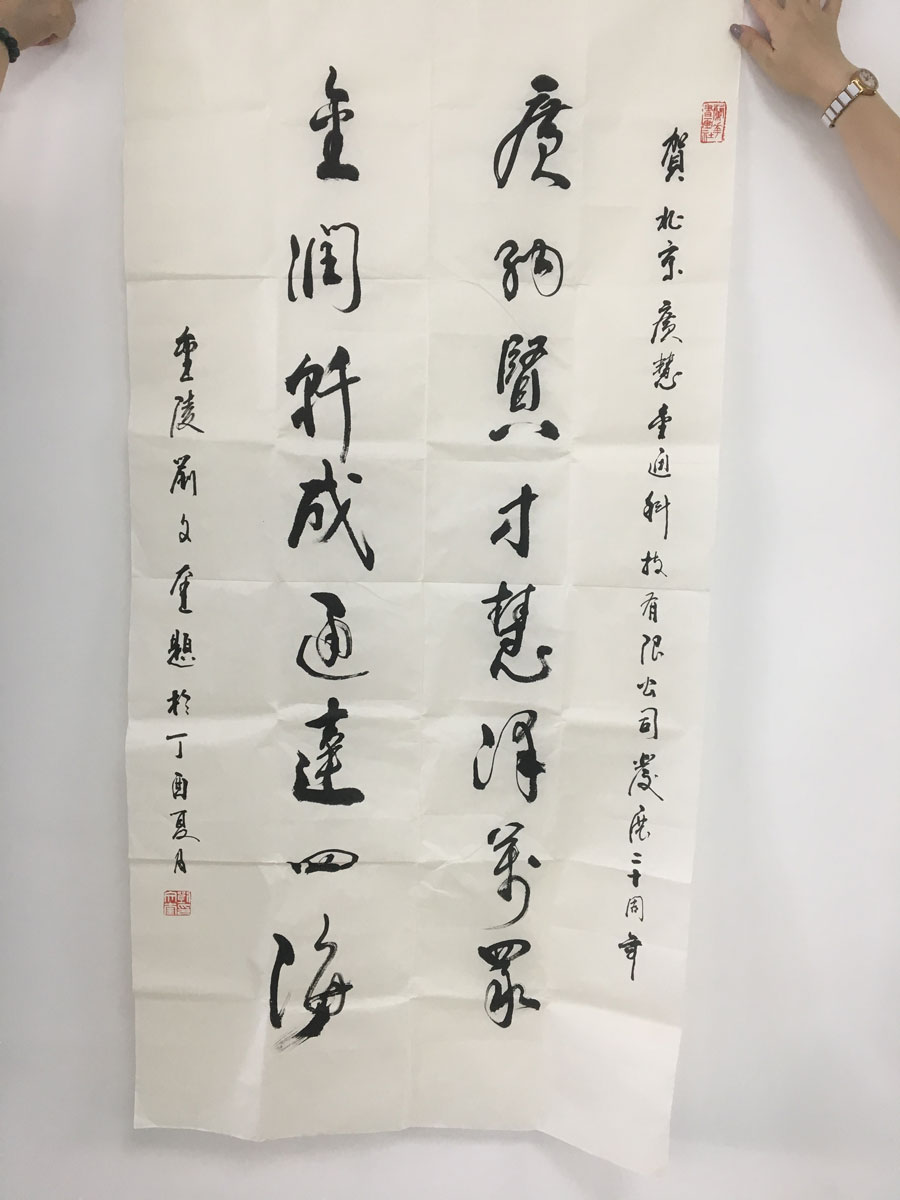 賀北京廣慧金通科技有限公司發展二十周年
廣納賢才慧澤萬眾
金潤軒成通達四海
金陵劉文題於丁酉夏月